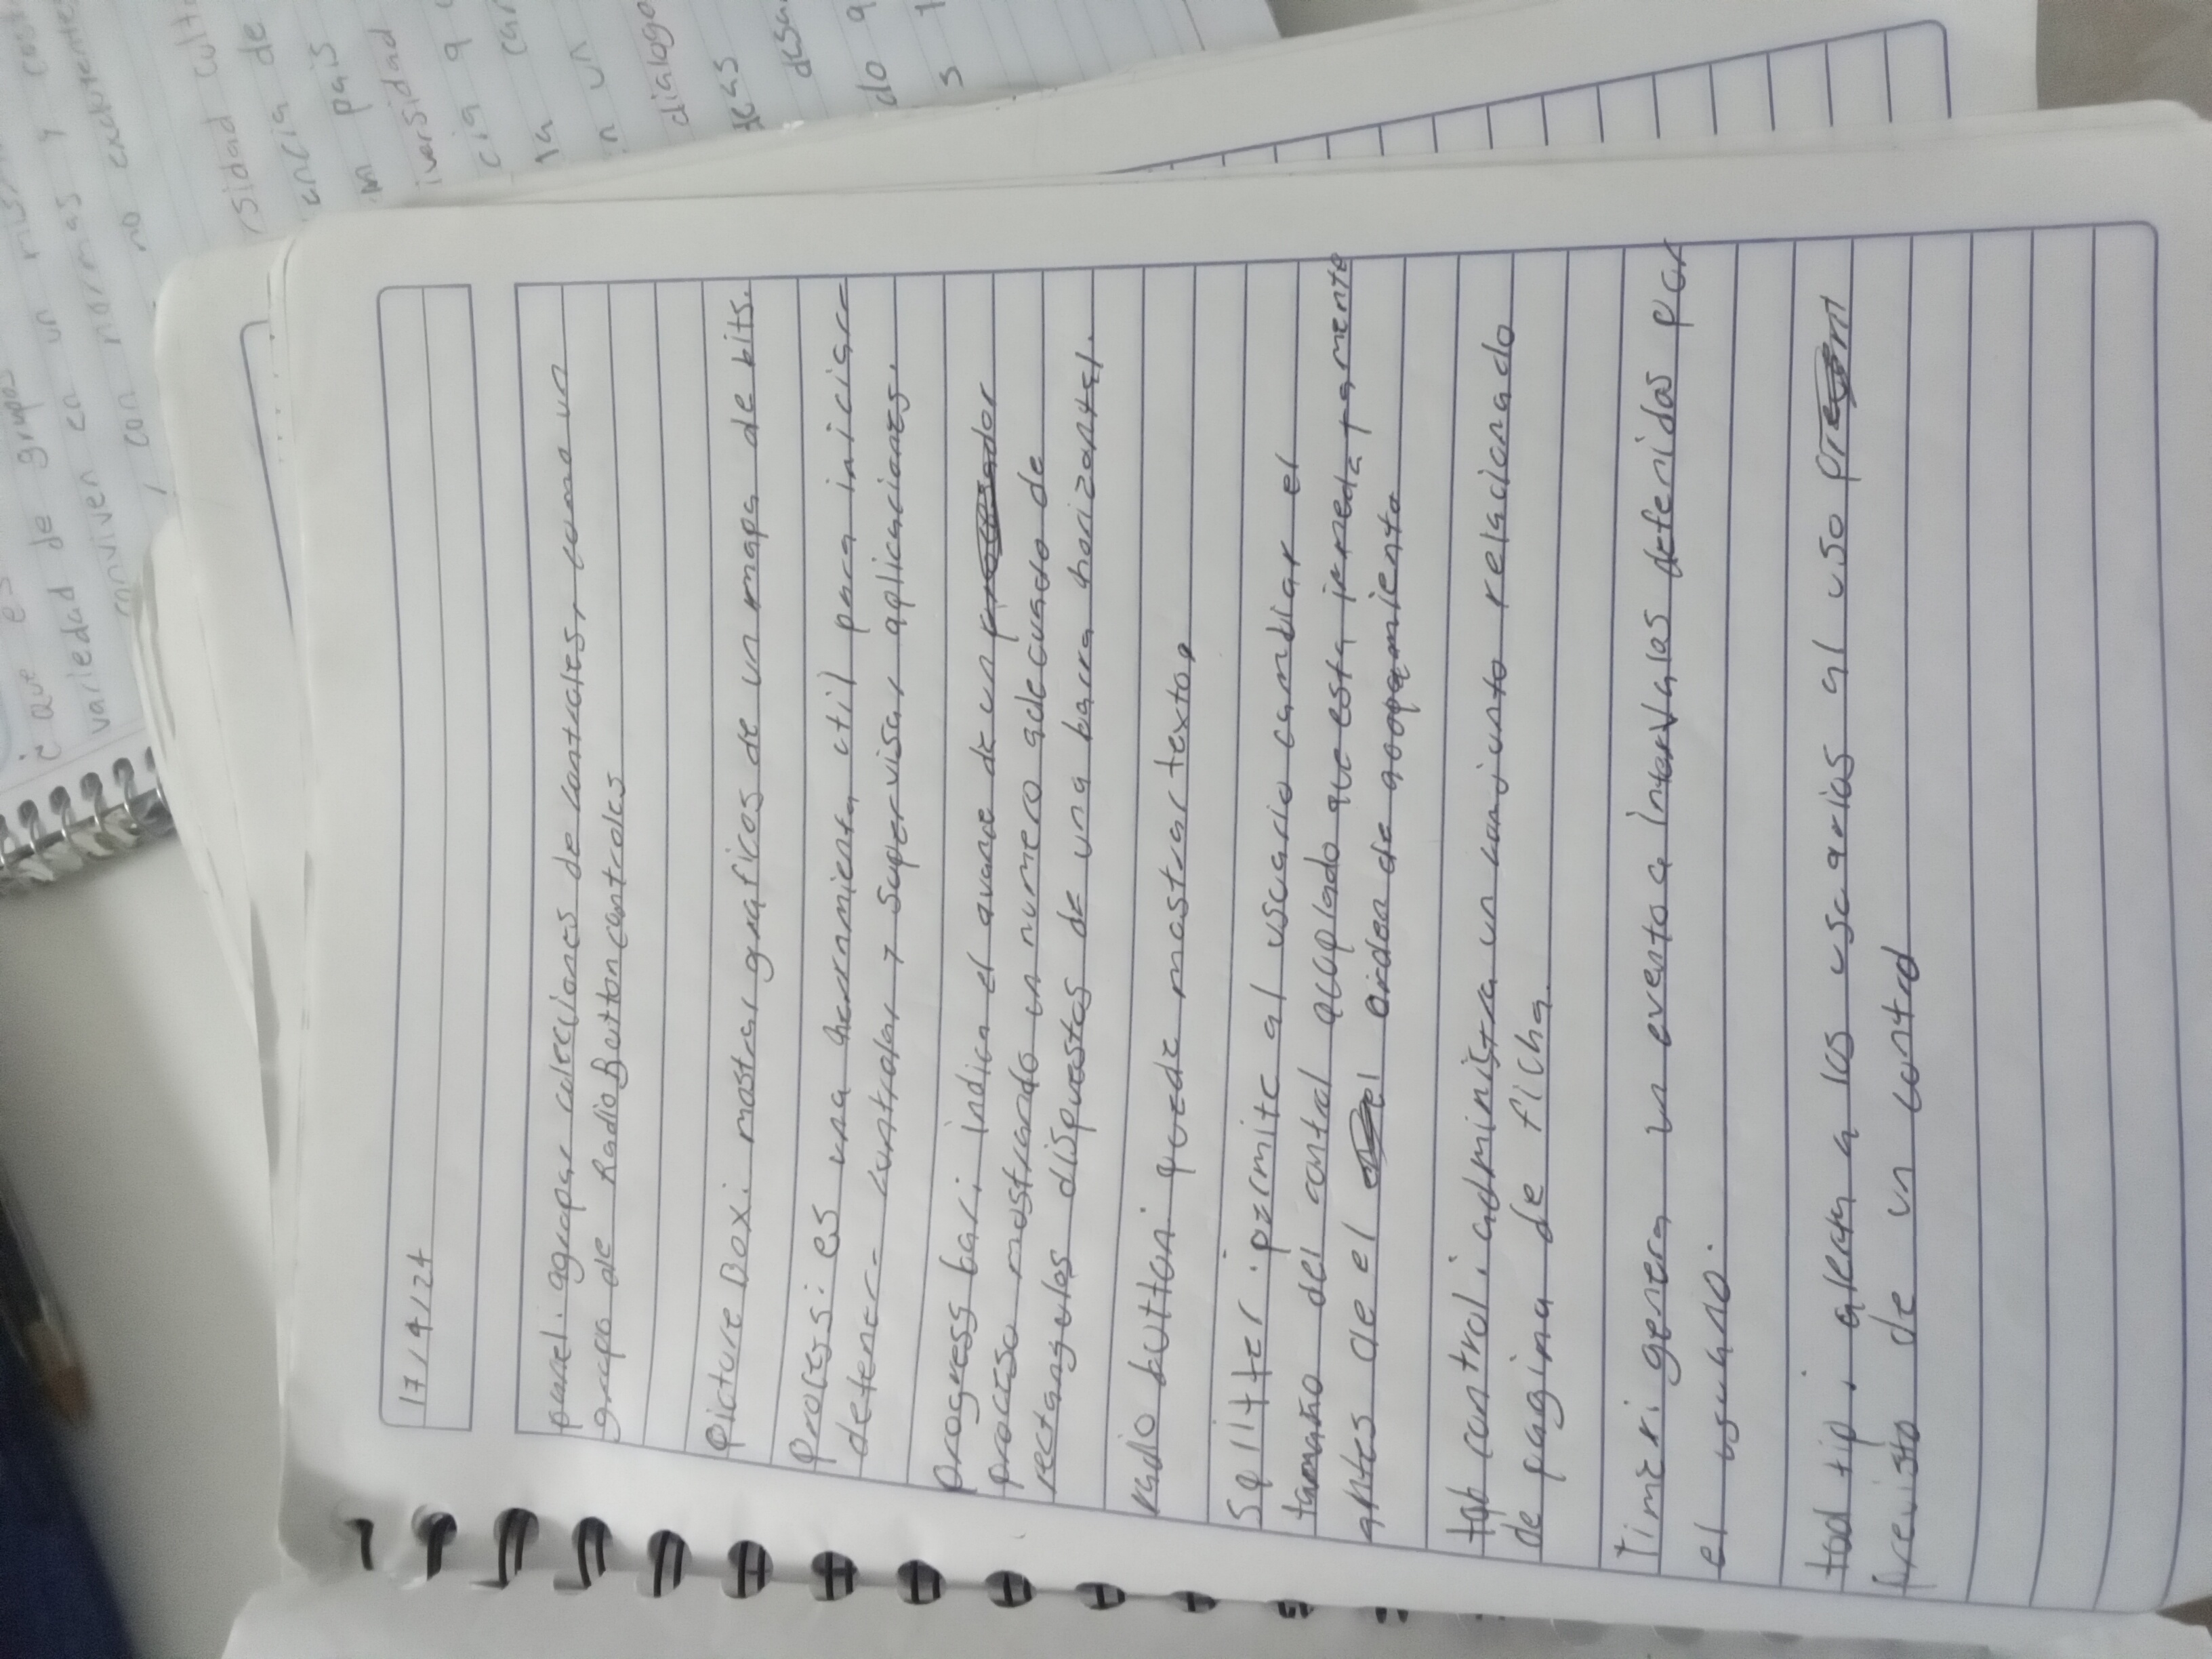 ¿ que es
de grupos
variedad de
en un
normas y
conviven
con
no excluyentes
sidad
ancia de
país
iversidad
cia
n un
dialogo
do
17/4/24
panel: agrupar colecciones de controles, como un
grupo de RadioButton controles
Picture Box: mostrar graficos de un mapa de bits.
Process: es una herramienta util para iniciar
detener controlar y supervisar aplicaciones.
progress bar: indica el avance de un
proceso mostrando un numero adecuado de
rectangulos dispuestos de una barra horizontal.
radio button: puede mostrar texto,
Splitter: permite al usuario cambiar el
tamaño del control acoplado que esta
antes de el orden de
tab control: administra un conjunto relacionado
de pagina de ficha.
Timer: genera un evento a intervalos defenidos por
el usuario.
tool tip: alerta a los usuarios al uso
previsto de un control